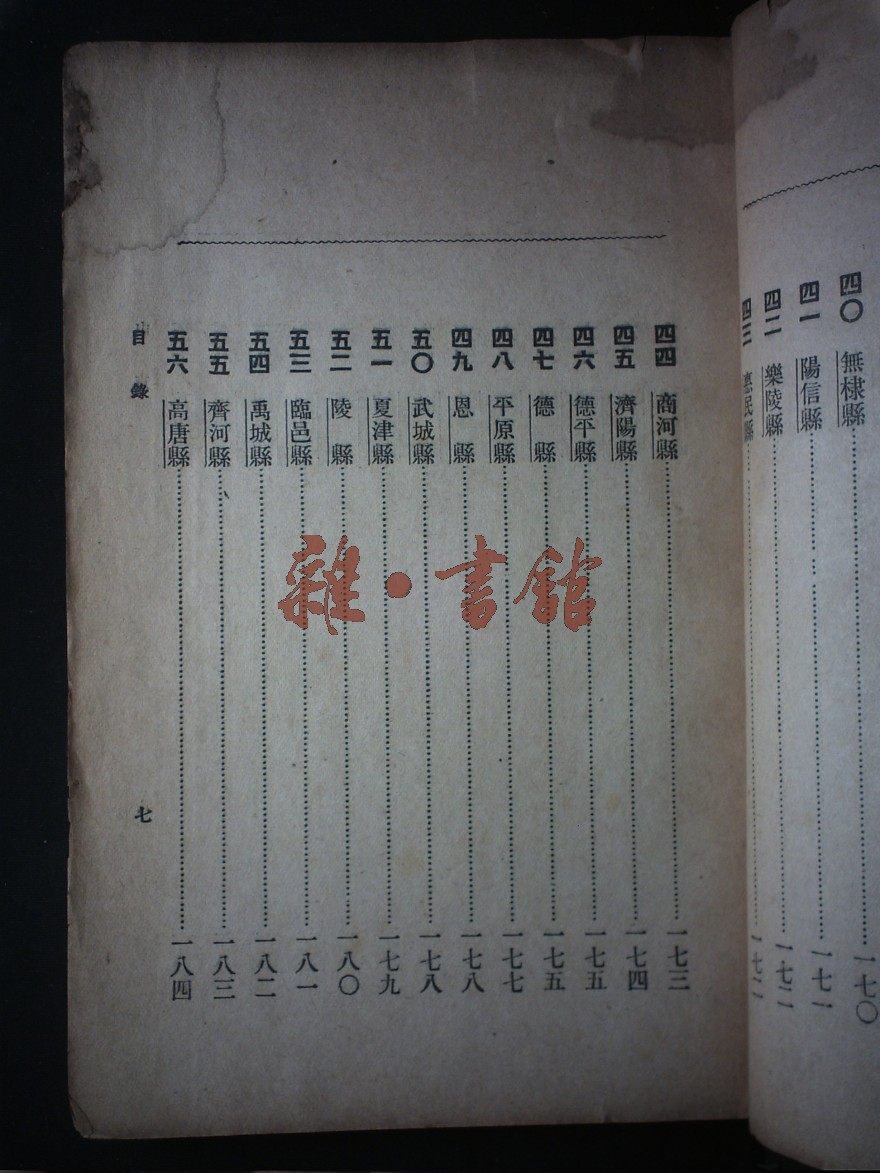 四〇 無棣縣 一七〇
四一 陽信縣 一七一
四二 樂陵縣 一七二
四三 惠民縣 一七二
四四 商河縣 一七三
四五 濟陽縣 一七四
四六 德平縣 一七五
四七 德 縣 一七五
四八 平原縣 一七七
四九 恩 縣 一七八
五〇 武城縣 一七八
五一 夏津縣 一七九
五二 陵 縣 一八〇
五三 臨邑縣 一八一
五四 禹城縣 一八二
五五 齊河縣 一八三
五六 高唐縣 一八四
目 錄 七
雜·書館